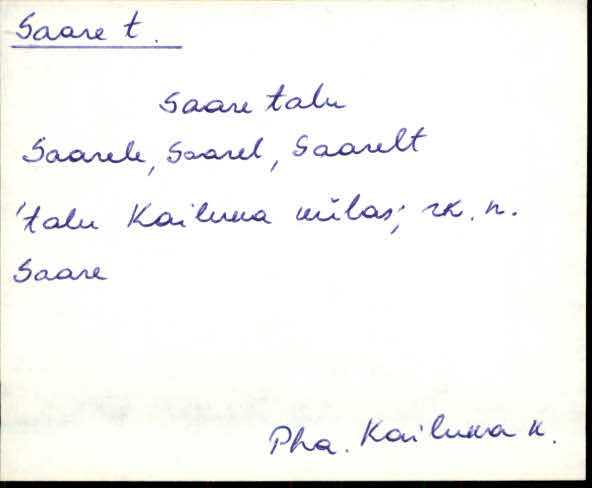 Saare t.
Saare talu
Saarele, Saarel, Saarelt
'talu Kailuka külas; rk. n.
Saare
Pha. Kailuka k.